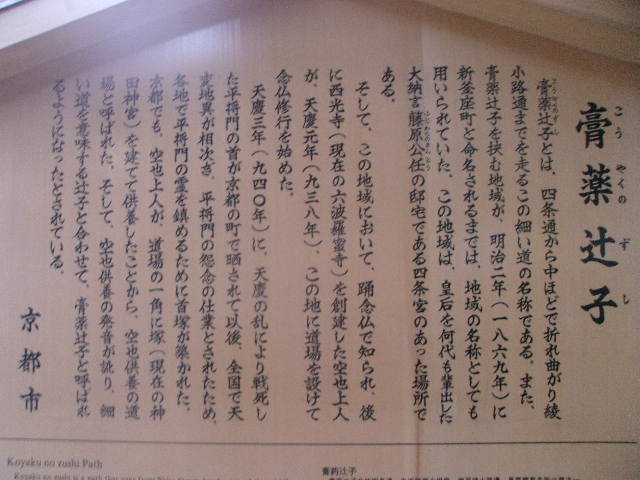 膏薬辻子
こうやくのずし
膏薬辻子とは、四条通から中ほどで折れ曲がり綾
小路通までを走るこの細い道の名称である。また、
膏薬辻子を挟む地域が、明治二年（一八六九年）に
新釜座町と命名されるまでは、地域の名称としても
用いられていた。この地域は、皇后を何代も輩出した
大納言藤原公任の邸宅である四条宮のあった場所で
ある。
そして、この地域において、踊念仏で知られ、後
に西光寺（現在の六波羅蜜寺）を創建した空也上人
が、天慶元年（九三八年）、この地に道場を設けて
念仏修行を始めた。
天慶三年（九四〇年）に、天慶の乱により戦死し
た平将門の首が京都の町で晒されて以後、全国で天
変地異が相次ぎ、平将門の怨念の仕業とされたため、
各地で平将門の霊を鎮めるために首塚が築かれた。
京都でも、空也上人が、道場の一角に塚（現在の神
田神宮）を建てて供養したことから、空也供養の道
場と呼ばれた。そして、空也供養の発音が訛り、細
い道を意味する辻子と合わせて、膏薬辻子と呼ばれ
るようになったとされている。
京都市
Koyaku no zushi Path
膏药辻子